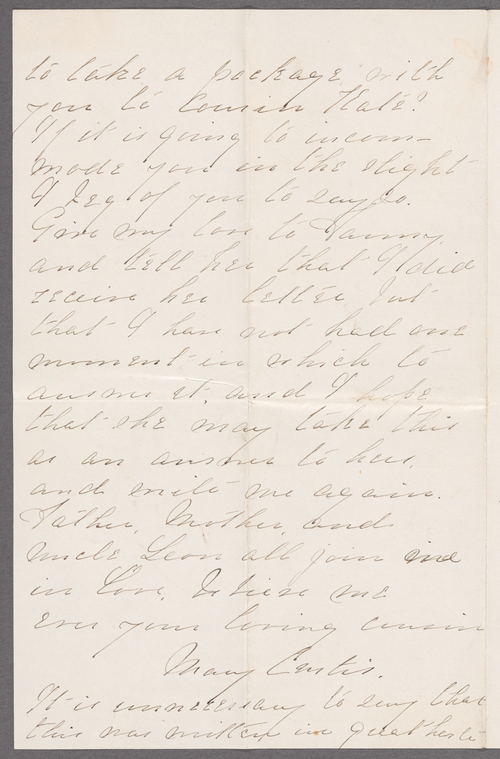 to take a package with
you to Cousin Kate?
If it is going to incom-
mode you in the slight
I beg of you to say so.
Give my love to Fanny,
and tell her that I did
receive her letter, but
that I have not had one
moment in which to
answer it, and I hope
that she may take this
as an answer to hers,
and write me again.
Father, Mother, and
Uncle Leon all join me
in love, Believe me
ever your loving cousin
Mary Curtis.
It is unnecessary to say that
this was written in great haste